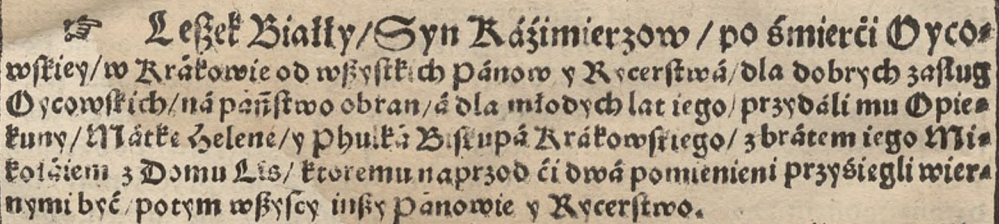 ☞ Leßek Biáłły/ Syn Káźimierzow / po śmierći Oyco⸗
wſkiey/ w Krákowie od wßyſtkich Pánow y Rycerſtwá/ dla dobrych zaſług
Oycowſkich/ ná páńſtwo obran/ á dla młodych lat iego/ przydáli mu Opie⸗
kuny/ Mátkę Helenę/ y Phułká Biſkupá Krákowſkiego/ z brátem iego Mi⸗
kołáiem z Domu Lis/ ktoremu naprzod ći dwá pomienieni przyśięgli wier⸗
nymi być/ potym wßyſcy inßy Pánowie y Rycerſtwo.